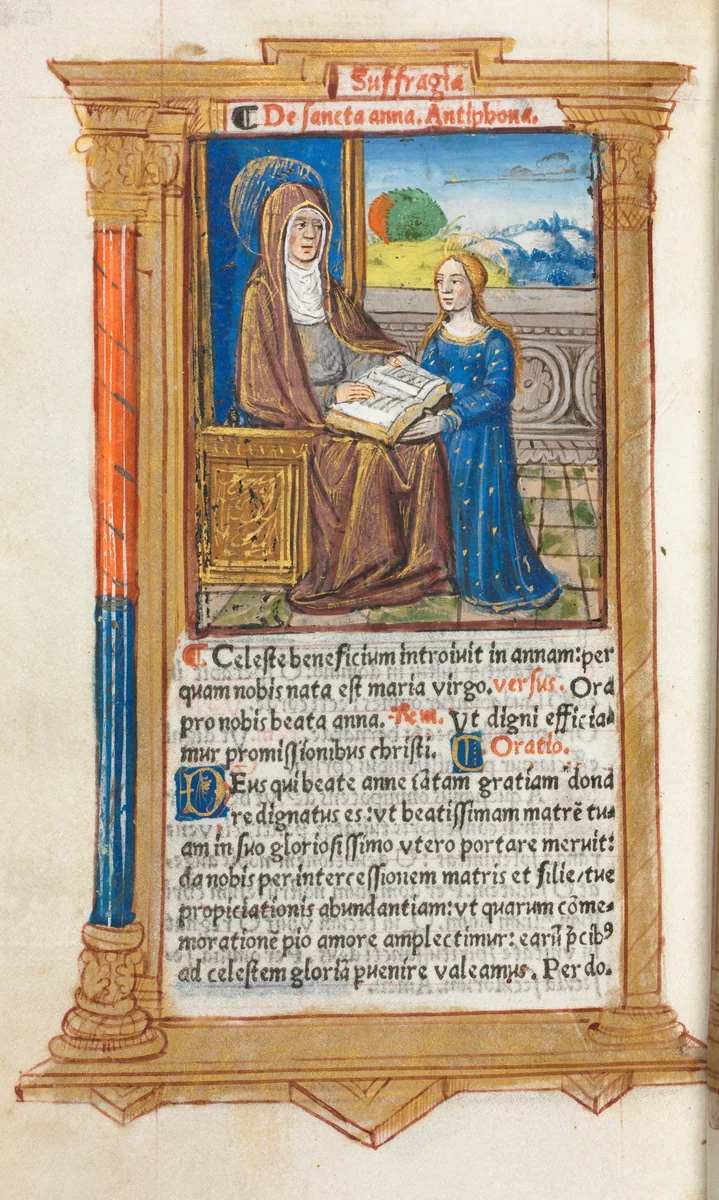 Suffragia
¶ De sancta anna. Antiphona.
¶ Celeste beneficium introiuit in annam: per
quam nobis nata est maria virgo. versus. Ora
pro nobis beata anna. Rem. Vt digni efficia-
mur promissionibus christi. ¶ Oratio.
DEus qui beate anne tātam gratiam dona
re dignatus es: vt beatissimam matrē tu-
am in suo gloriosissimo vtero portare meruit:
da nobis per intercessionem matris et filie, tue
propiciationis abundantiam: vt quarum cōme-
morationē pio amore amplectimur: earū p̄cibꝰ
ad celestem gloriā ꝑuenire valeamus. Per do.